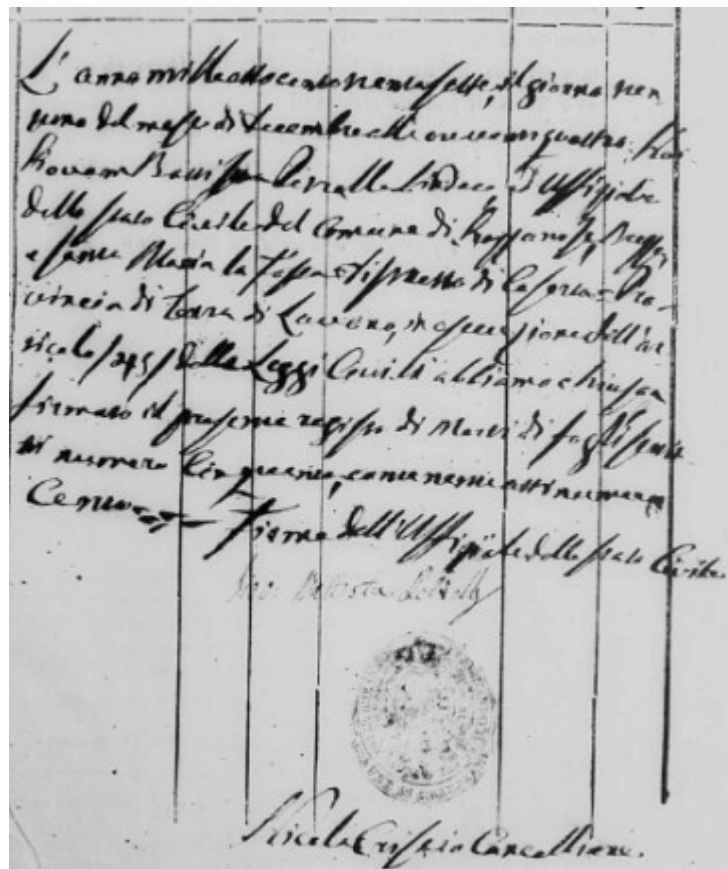 L'anno mille ottocento trentasette, il giorno tren
tuno del mese di Decembre alle ore ventiquattro. Noi
Giovan Battista Sindaco, ed Uffiziale
dello stato Civile del Comune di
e santa Maria la Fossa Distretto di Caserta Pro-
vincia di Terra di Lavoro, in esecuzione dell'ar
ticolo /245/ delle Leggi Civili abbiamo chiuso, e
firmato il presente registro di Morti di fogli scrit
ti numero Cinquanta, contenente atti numero
Cento Firma dell'Uffiziale dello stato Civile
Battista
Nicola Cancelliere.